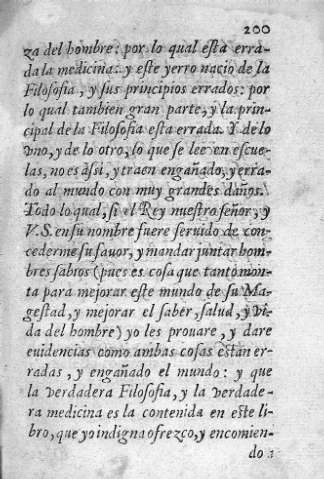 200
za del hombre: por lo qual esta erra-
da la medicina: y este yerro nacio de la
Filosofia, y sus principios errados: por
lo qual tambien gran parte, y la prin-
cipal de la Filosofia esta errada. Y de lo
vno, y de lo otro, lo que se lee en escue-
las, no es assi, y traen engañado, y erra-
do al mundo con muy grandes daños.
Todo lo qual, si el Rey nuestro señor, y
V.S. en su nombre fuere seruido de con-
cederme su fauor, y mandar juntar hom-
bres sabios (pues es cosa que tanto mon-
ta para mejorar este mundo de su Ma-
gestad, y mejorar el saber, salud, y vi-
da del hombre) yo les prouare, y dare
euidencias como ambas cosas estan er-
radas, y engañado el mundo: y que
la verdadera Filosofia, y la verdade-
ra medicina es la contenida en este li-
bro, que yo indigna ofrezco, y encomien-
do